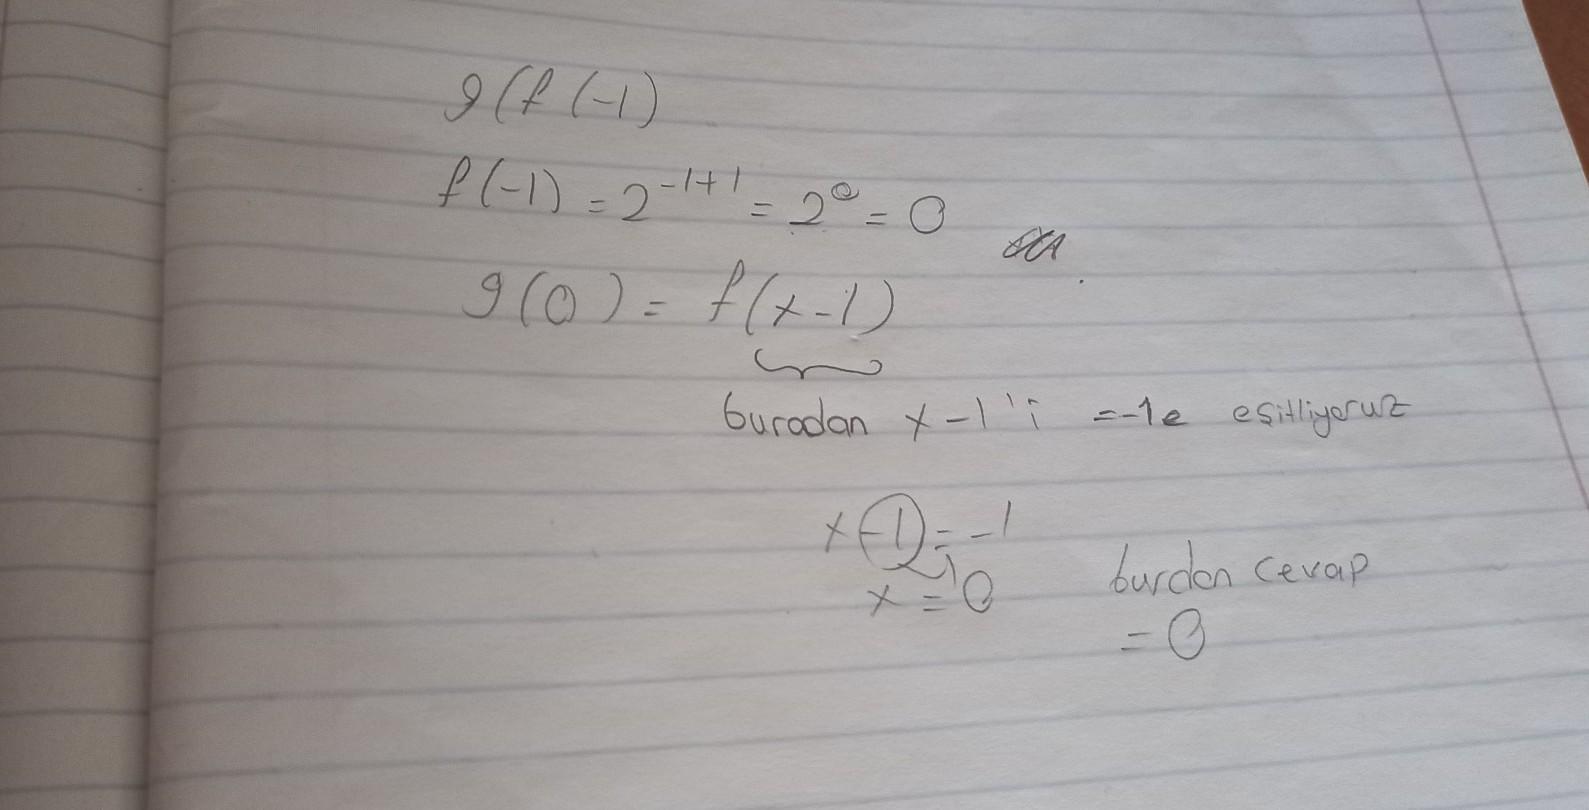 g(f(-1)
f(-1) = 2^-1+1 = 2^0 = 0
g(0) = f(x-1)
buradan x-1'i =-1e eşitliyoruz
x-1 = -1
x = 0
burdan cevap
= 0